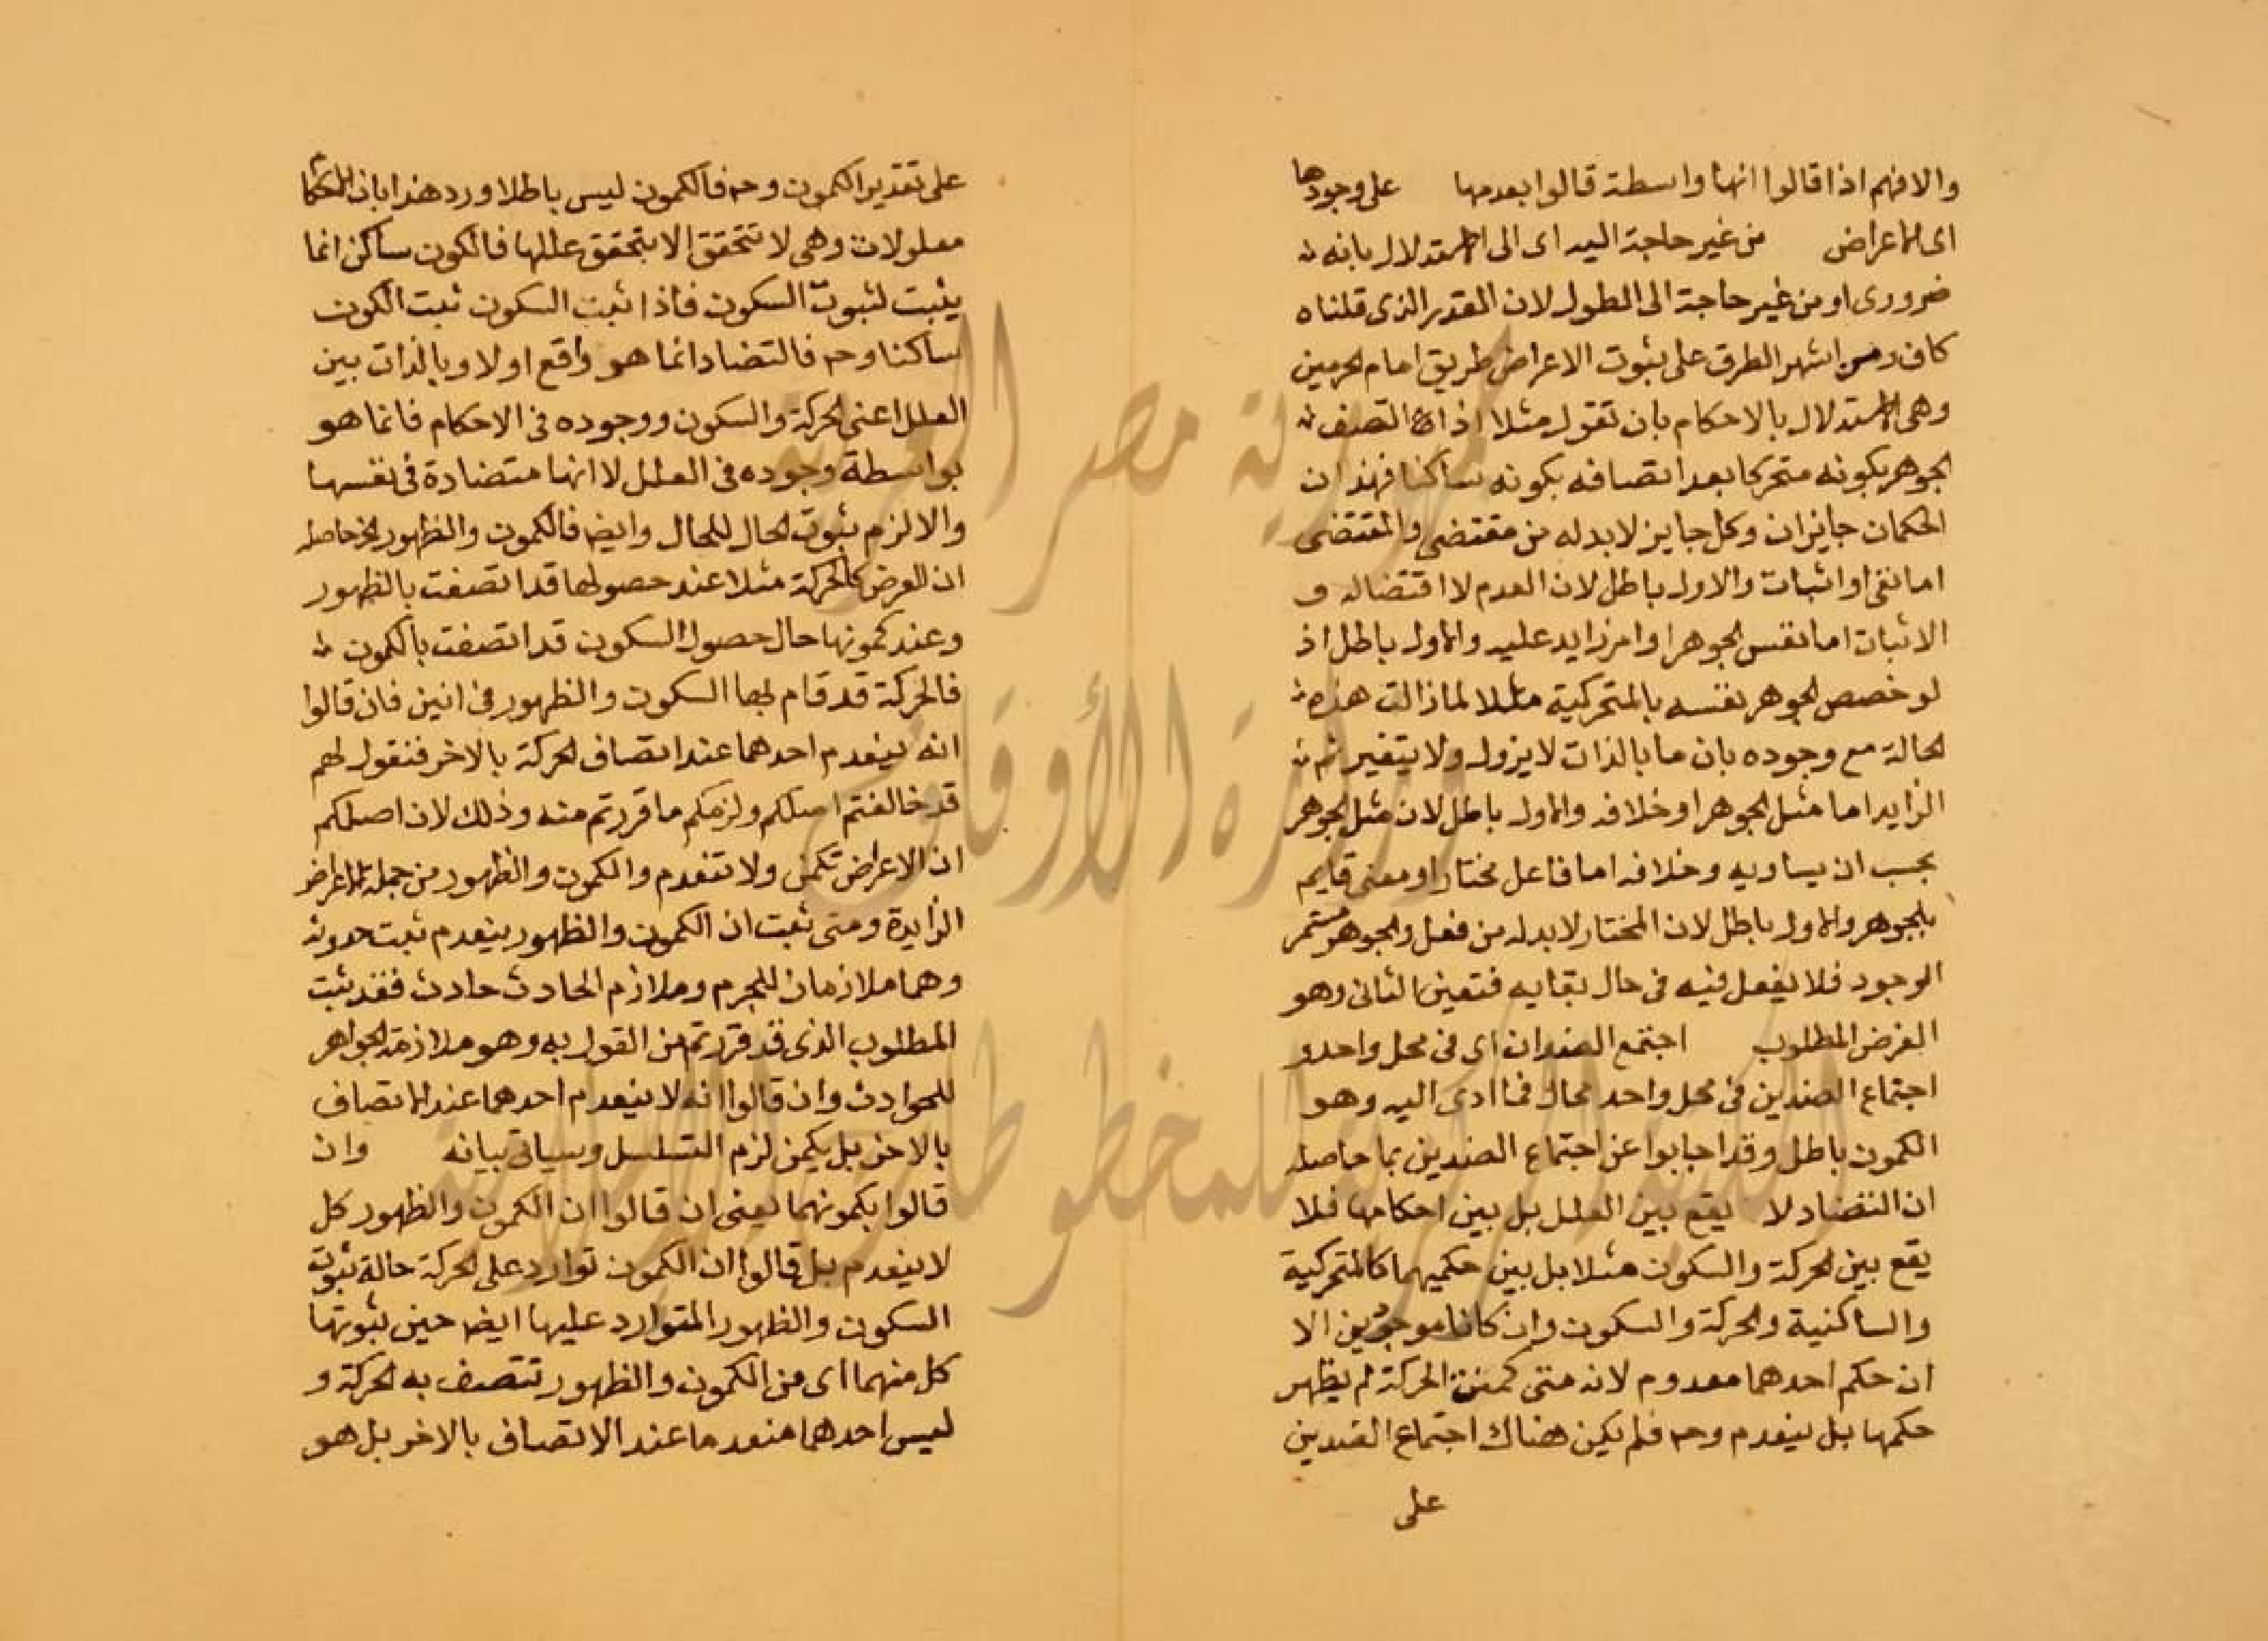 والا فهم اذا قالوا انها واسطة قالوا بعدمها على وجودها
اى الاعراض من غير حاجة اليه اى الى الاستدلال بانه
ضرورى او من غير حاجة الى الطول لان القدر الذى قلناه
كاف ومن اشهر الطرق على ثبوت الاعراض طريق امام الحرمين
وهى الاستدلال بالاحكام بان تقول مثلا اذا اتصف
الجوهر بكونه متحركا بعد اتصافه بكونه ساكنا فهذان
الحكمان جايزان وكل جايز لا بد له من مقتضى والمقتضى
اما نفى او اثبات والاول باطل لان العدم لا اقتضا له و
الاثبات اما نفس الجوهر او امر زايد عليه والاول باطل اذ
لو خصص الجوهر نفسه بالمتحركية مثلا لما زالت هذه
الحالة مع وجوده بان ما بالذات لا يزول ولا يتغير ثم
الزايد اما مثل الجوهر او خلافه والاول باطل لان مثل الجوهر
يجب ان يساويه وخلافه اما فاعل مختار او معنى قايم
بالجوهر والاول باطل لان المختار لا بد له من فعل والجوهر مستمر
الوجود فلا يفعل فيه فى حال بقايه فتعين الثانى وهو
الغرض المطلوب اجتمع الضدان اى فى محل واحد و
اجتماع الضدين فى محل واحد محال فما ادى اليه وهو
الكمون باطل وقد اجابوا عن اجتماع الضدين بما حاصله
ان التضاد لا يقع بين العلل بل بين احكامها فلا
يقع بين الحركة والسكون مثلا بل بين حكميهما كالمتحركية
والساكنية والحركة والسكون وان كانا موجودين الا
ان حكم احدهما معدوم لانه متى كمنت الحركة لم يظهر
حكمها بل ينعدم وح فلم يكن هناك اجتماع الضدين
على
على تقدير الكمون وح فالكمون ليس باطلا ورد هذا بان الاحكام
معلولات وهى لا تتحقق الا بتحقق عللها فالكون ساكن انما
يثبت لثبوت السكون فاذا ثبت السكون ثبت الكون
ساكنا وح فالتضاد انما هو واقع اولا وبالذات بين
العلل اعنى الحركة والسكون ووجوده فى الاحكام فانما هو
بواسطة وجوده فى العلل لا انها متضادة فى نفسها
والا لزم ثبوت الحال للحال وايض فالكمون والظهور الخ حاصله
ان العرض كالحركة مثلا عند حصولها قد اتصفت بالظهور
وعند كمونها حال حصول السكون قد اتصفت بالكمون
فالحركة قد قام بها السكون والظهور فى انين فان قالوا
انه ينعدم احدهما عند اتصاف الحركة بالاخر فنقول لهم
قد خالفتم اصلكم ولزمكم ما قررتم منه وذلك لان اصلكم
ان الاعراض تكمن ولا تنعدم والكمون والظهور من جملة الاعراض
الزايدة ومتى ثبت ان الكمون والظهور ينعدم ثبت حدوثه
وهما ملازمان للجرم وملازم الحادث حادث فقد ثبت
المطلوب الذى قد قررتم من القول به وهو ملازمة الجواهر
للحوادث وان قالوا انه لا ينعدم احدهما عند الاتصاف
بالاخر بل يكمن لزم التسلسل وسياتى بيانه وان
قالوا بكمونهما يعنى ان قالوا ان الكمون والظهور كل
لا ينعدم بل قالوا ان الكمون توارد على الحركة حالة ثبوت
السكون والظهور المتوارد عليها ايض حين ثبوتها
كل منهما اى من الكمون والظهور تتصف به الحركة و
ليس احدهما منعدما عند الاتصاف بالاخر بل هو